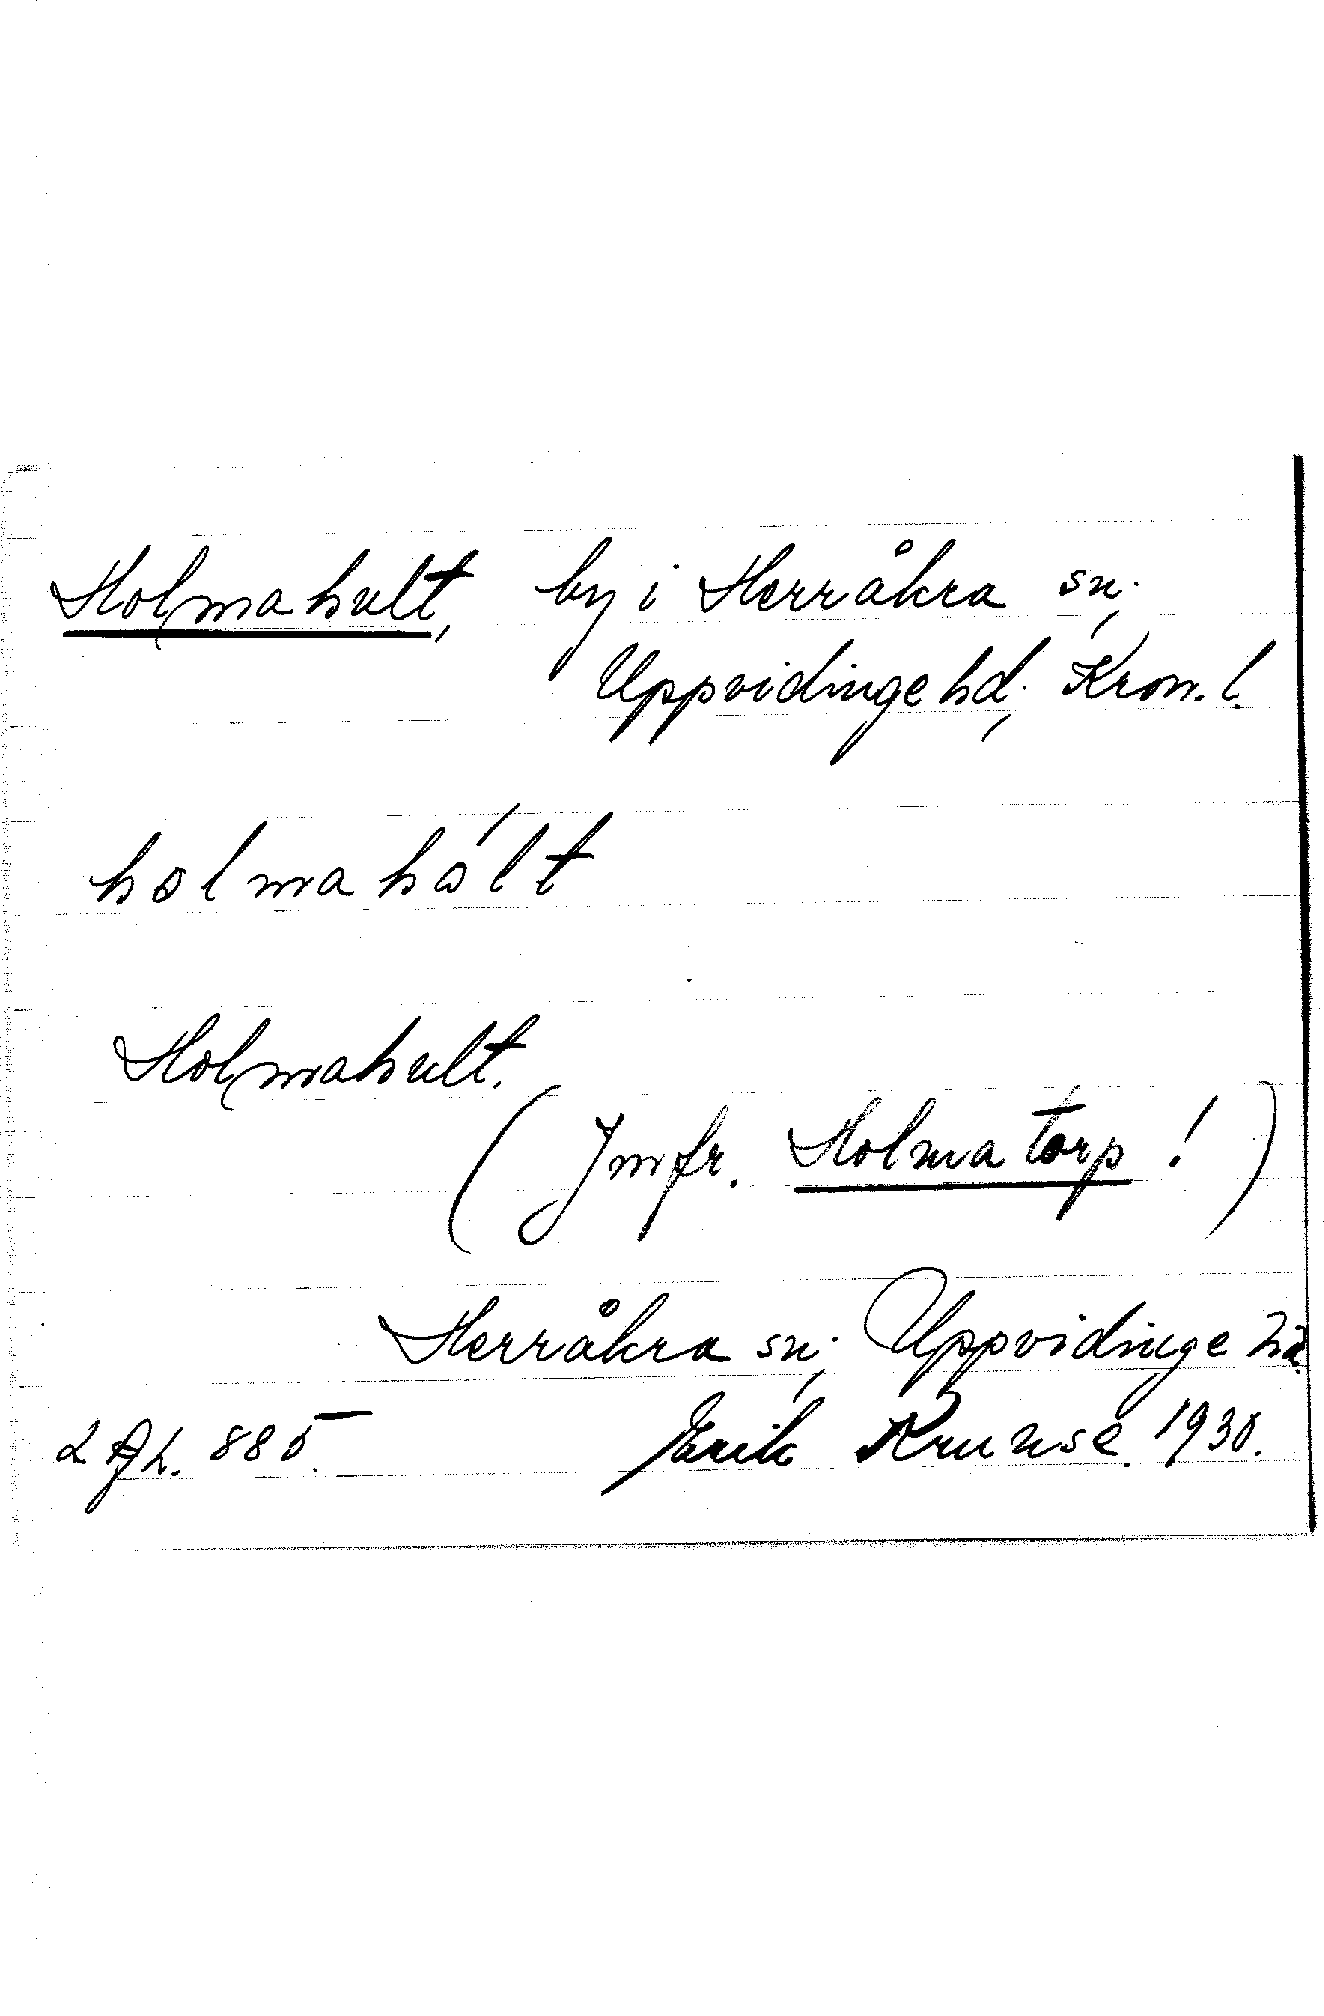 Holmahult, by i Herråkra sn.,
Uppvidinge hd., Kron. l.
holmahólt
Holmahult.
(Jmfr. Holmatorp!)
Herråkra sn., Uppvidinge hd.
Erik Kruuse. 1930.